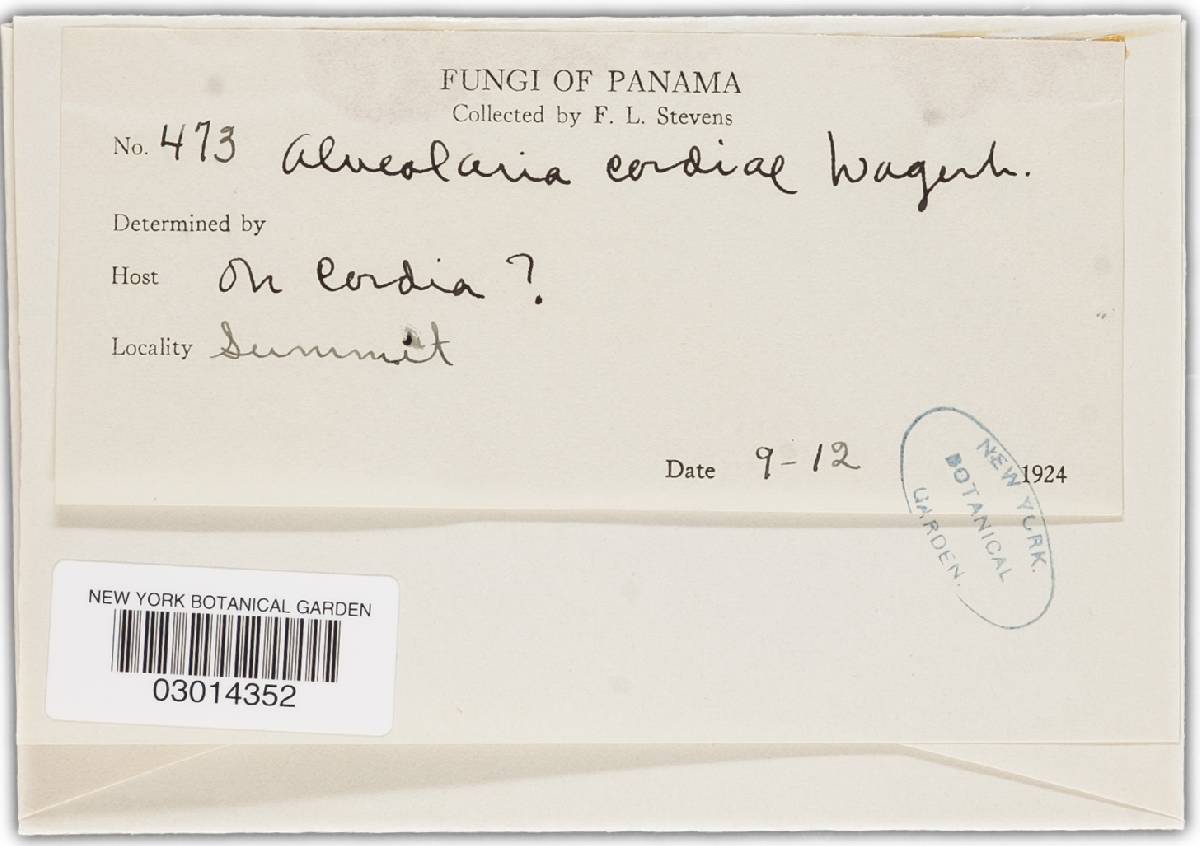 FUNGI OF PANAMA
Collected by F. L. Stevens
No. 473 Alveolaria cordiae Wagerh.
Determined by
Host On Cordia ?
Locality Summit
Date 9-12 1924
NEW YORK.
BOTANICAL
GARDEN.
NEW YORK BOTANICAL GARDEN
03014352